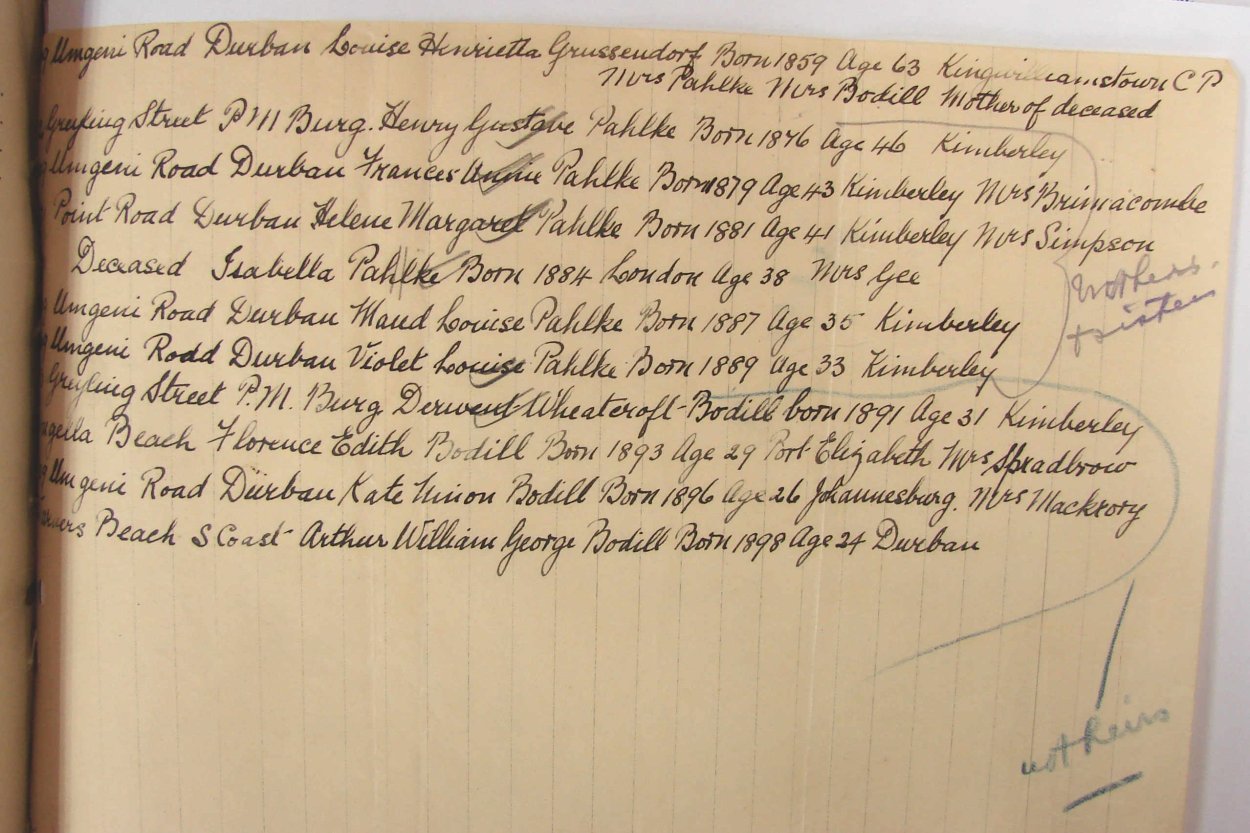 Umgeni Road Durban Louise Henrietta Grussendorf Born 1859 Age 63 Kingwilliamstown C P
Mrs Pahlke Mrs Bodill Mother of deceased
Greyling Street P M Burg. Henry Gustave Pahlke Born 1876 Age 46 Kimberley
Umgeni Road Durban Frances Annie Pahlke Born 1879 Age 43 Kimberley Mrs Brimacombe
Point Road Durban Helene Margaret Pahlke Born 1881 Age 41 Kimberley Mrs Simpson
Deceased Isabella Pahlke Born 1884 London Age 38 Mrs Gee
Umgeni Road Durban Maud Louise Pahlke Born 1887 Age 35 Kimberley
Umgeni Rodd Durban Violet Louise Pahlke Born 1889 Age 33 Kimberley
Greyling Street P.M. Burg Derwent Wheatcroft Bodill born 1891 Age 31 Kimberley
Beach Florence Edith Bodill Born 1893 Age 29 Port Elizabeth Mrs Spradbrow
Umgeni Road Durban Kate Union Bodill Born 1896 Age 26 Johannesburg. Mrs Mackrory
Beach S Coast Arthur William George Bodill Born 1898 Age 24 Durban
+ sisters
not heirs